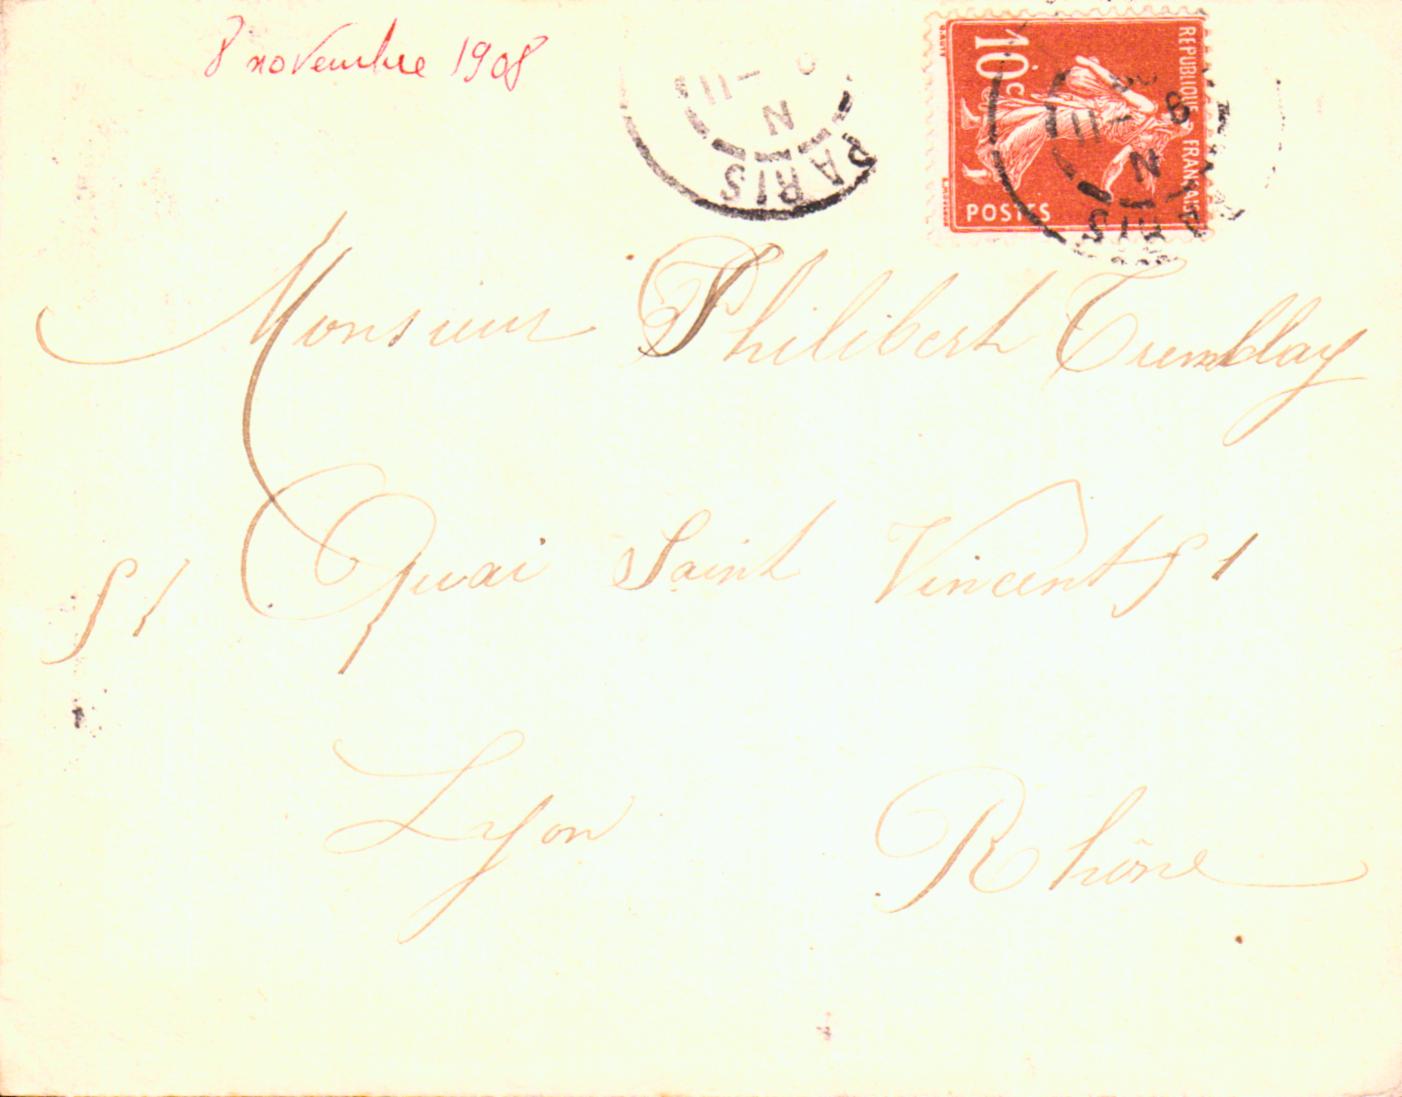 8 novembre 1908
PARIS
N
11
10c
REPUBLIQUE FRANÇAISE
POSTES
Monsieur Philibert Tremblay
51 Quai Saint Vincent 51
Lyon Rhône